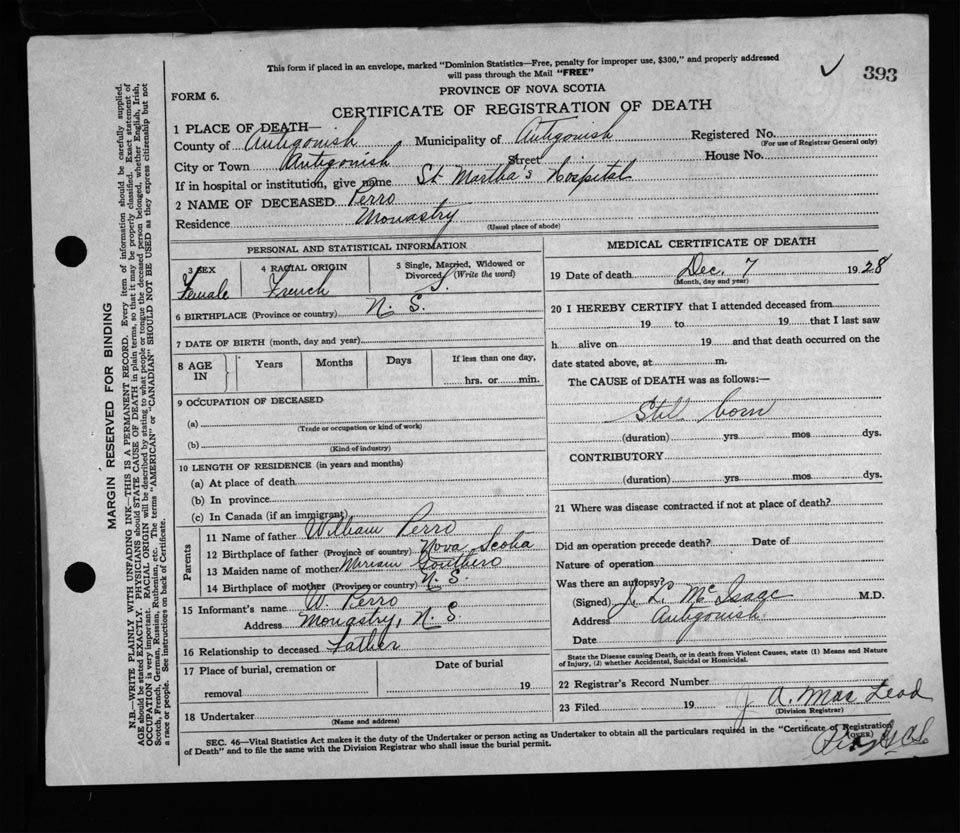 This form if placed in an envelope, marked "Dominion Statistics—Free, penalty for improper use, $300," and properly addressed
will pass through the Mail "FREE"
393
PROVINCE OF NOVA SCOTIA
FORM 6.
CERTIFICATE OF REGISTRATION OF DEATH
1 PLACE OF DEATH—
County of Antigonish Municipality of Antigonish Registered No.
(For use of Registrar General only)
City or Town Antigonish Street House No.
If in hospital or institution, give name St Martha's Hospital
2 NAME OF DECEASED Perro
Residence Monastry
(Usual place of abode)
PERSONAL AND STATISTICAL INFORMATION
3 SEX 4 RACIAL ORIGIN 5 Single, Married, Widowed or Divorced (Write the word)
Female French S.
6 BIRTHPLACE (Province or country) N. S.
7 DATE OF BIRTH (month, day and year)
8 AGE IN Years Months Days If less than one day,
hrs. or min.
9 OCCUPATION OF DECEASED
(a)
(Trade or occupation or kind of work)
(b)
(Kind of industry)
10 LENGTH OF RESIDENCE (in years and months)
(a) At place of death
(b) In province
(c) In Canada (if an immigrant)
Parents
11 Name of father William Perro
12 Birthplace of father (Province or country) Nova Scotia
13 Maiden name of mother Miriam Southero
14 Birthplace of mother (Province or country) N. S.
15 Informant's name W. Perro
Address Monastry, N. S
16 Relationship to deceased Father
17 Place of burial, cremation or Date of burial
removal 19
18 Undertaker
(Name and address)
MEDICAL CERTIFICATE OF DEATH
19 Date of death Dec. 7 1928
(Month, day and year)
20 I HEREBY CERTIFY that I attended deceased from
19 to 19 that I last saw
h alive on 19 and that death occurred on the
date stated above, at m.
The CAUSE of DEATH was as follows:—
Still born
(duration) yrs mos dys.
CONTRIBUTORY
(duration) yrs mos dys.
21 Where was disease contracted if not at place of death?
Did an operation precede death? Date of
Nature of operation
Was there an autopsy?
(Signed) J. L. McIsaac M.D.
Address Antigonish
Date
State the Disease causing Death, or in death from Violent Causes, state (1) Means and Nature
of Injury, (2) whether Accidental, Suicidal or Homicidal.
22 Registrar's Record Number
23 Filed 19 J. A. MacLeod
(Division Registrar)
SEC. 46—Vital Statistics Act makes it the duty of the Undertaker or person acting as Undertaker to obtain all the particulars required in the "Certificate of Registration
of Death" and to file the same with the Division Registrar who shall issue the burial permit.
(OVER)
MARGIN RESERVED FOR BINDING
N.B.—WRITE PLAINLY WITH UNFADING INK—THIS IS A PERMANENT RECORD. Every item of information should be carefully supplied.
AGE should be stated EXACTLY. PHYSICIANS should STATE CAUSE OF DEATH in plain terms, so that it may be properly classified. Exact statement of
OCCUPATION is very important. RACIAL ORIGIN will be described by stating to what people or tongue the deceased person belonged, whether English, Irish,
Scotch, French, German, Russian, Ruthenian, etc. The terms "AMERICAN" or "CANADIAN" SHOULD NOT BE USED as they express citizenship but not
a race or people. See instructions on back of Certificate.